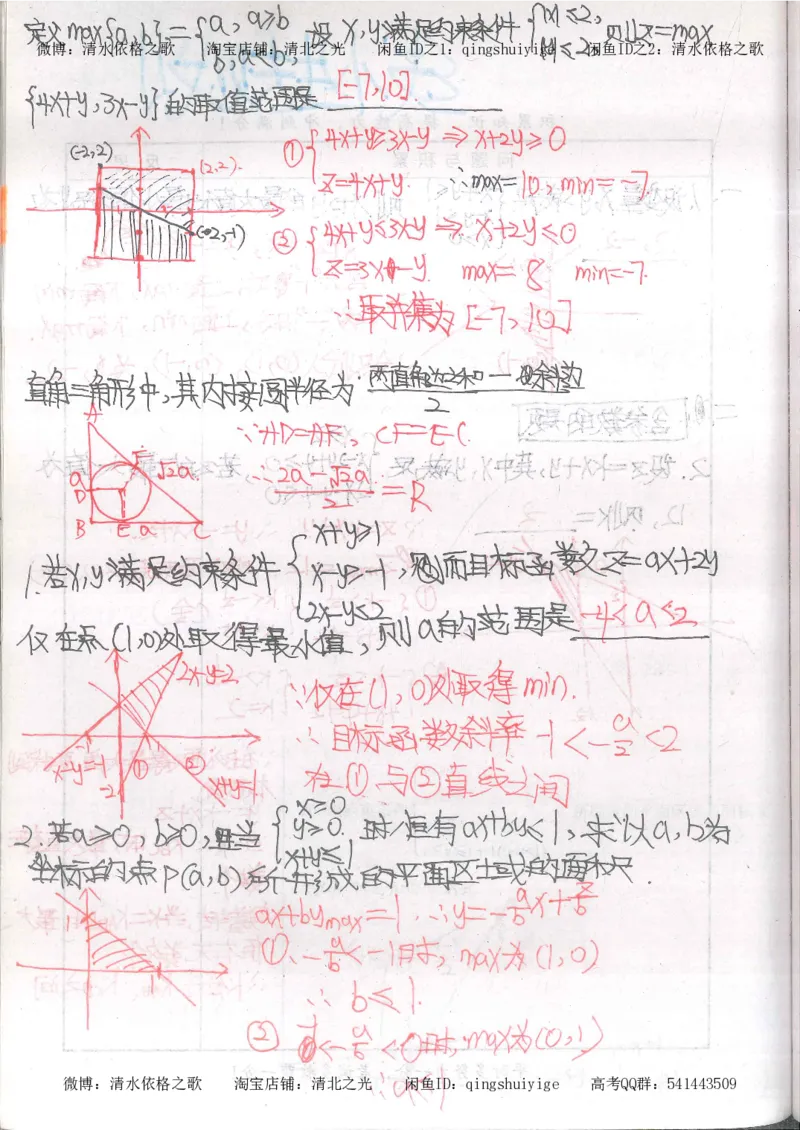 定义max{a,b}={a, a≥b
b, a<b, 设x,y满足约束条件{|x|≤2,
|y|≤2, 则z=max
微博：清水依格之歌 淘宝店铺：清北之光 闲鱼ID之1：qingshuiyige 闲鱼ID之2：清水依格之歌
{4x+y,3x-y}的取值范围是 [-7,10].
① {4x+y≥3x-y ⇒ x+2y≥0
z=4x+y. ∴max=10, min=-7.
(-2,2)
(2,2).
② {4x+y≤3x-y ⇒ x+2y≤0
z=3x-y. max=8 min=-7.
∴取并集为[-7,10]
直角三角形中,其内接圆半径为 两直角边之和-斜边
2
A
∵AD=AF, CF=EC.
F √2a.
a
D
∴ 2a-√2a
2 =R
B E a C
1.若x,y满足约束条件{x+y≥1
x-y≥-1
2x-y≤2 ,而目标函数z=ax+2y
仅在点(1,0)处取得最小值,则a的范围是 -4<a<2
2x-y=2
∵仅在(1,0)处取得min.
∴目标函数斜率 -1<-a/2<2
x-y=-1 ① ② x+y=1
-1
-2
在①与②直线之间
2.若a≥0,b≥0,且当{x≥0
y≥0.
x+y≤1 时,恒有ax+by≤1,求以a,b为
坐标的点P(a,b)所形成的平面区域的面积
ax+by max=1 ∴y=-a/b x+z/b
1
1
①、-a/b<-1时, max为(1,0)
②
-a/b<0时, max为(0,1)
微博：清水依格之歌 淘宝店铺：清北之光 闲鱼ID：qingshuiyige 高考QQ群：541443509